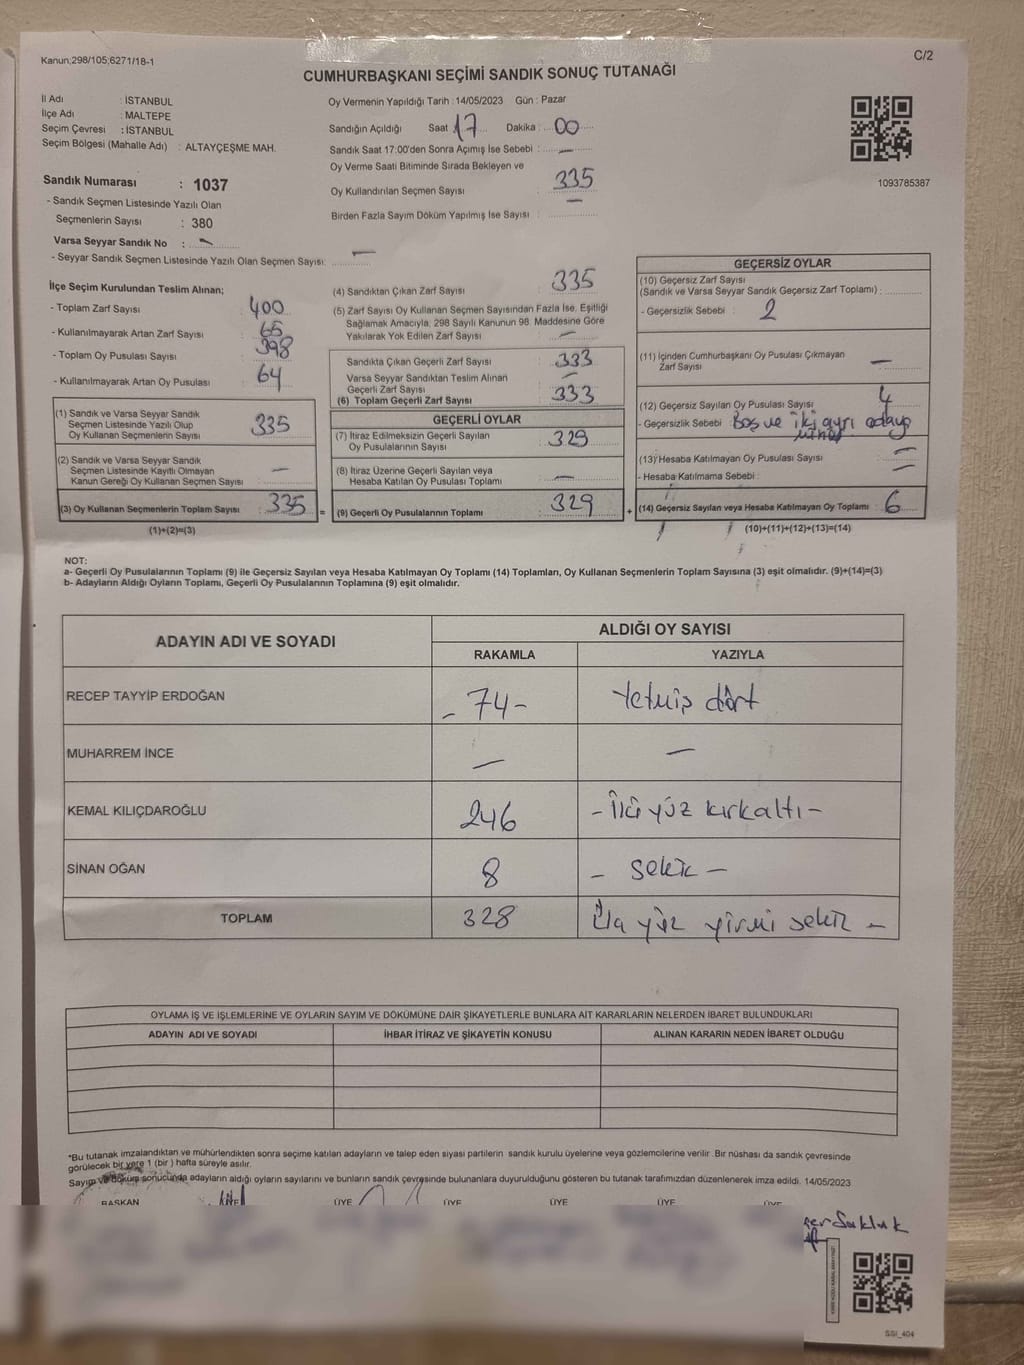 Kanun;298/105;6271/18-1
C/2
CUMHURBAŞKANI SEÇİMİ SANDIK SONUÇ TUTANAĞI
İl Adı : İSTANBUL
İlçe Adı : MALTEPE
Seçim Çevresi : İSTANBUL
Seçim Bölgesi (Mahalle Adı) : ALTAYÇEŞME MAH.
Sandık Numarası : 1037
- Sandık Seçmen Listesinde Yazılı Olan
Seçmenlerin Sayısı : 380
Varsa Seyyar Sandık No : -
- Seyyar Sandık Seçmen Listesinde Yazılı Olan Seçmen Sayısı: -
Oy Vermenin Yapıldığı Tarih : 14/05/2023 Gün : Pazar
Sandığın Açıldığı Saat 17 Dakika : 00
Sandık Saat 17:00'den Sonra Açımış İse Sebebi : -
Oy Verme Saati Bitiminde Sırada Bekleyen ve
Oy Kullandırılan Seçmen Sayısı : 335
Birden Fazla Sayım Döküm Yapılmış İse Sayısı : -
1093785387
İlçe Seçim Kurulundan Teslim Alınan;
- Toplam Zarf Sayısı : 400
- Kullanılmayarak Artan Zarf Sayısı : 65
- Toplam Oy Pusulası Sayısı : 398
- Kullanılmayarak Artan Oy Pusulası : 64
(1) Sandık ve Varsa Seyyar Sandık
Seçmen Listesinde Yazılı Olup
Oy Kullanan Seçmenlerin Sayısı : 335
(2) Sandık ve Varsa Seyyar Sandık
Seçmen Listesinde Kayıtlı Olmayan
Kanun Gereği Oy Kullanan Seçmen Sayısı : -
(3) Oy Kullanan Seçmenlerin Toplam Sayısı : 335 =
(1)+(2)=(3)
(4) Sandıktan Çıkan Zarf Sayısı : 335
(5) Zarf Sayısı Oy Kullanan Seçmen Sayısından Fazla İse, Eşitliği
Sağlamak Amacıyla; 298 Sayılı Kanunun 98. Maddesine Göre
Yakılarak Yok Edilen Zarf Sayısı : -
Sandıkta Çıkan Geçerli Zarf Sayısı : 333
Varsa Seyyar Sandıktan Teslim Alınan
Geçerli Zarf Sayısı : -
(6) Toplam Geçerli Zarf Sayısı : 333
GEÇERLİ OYLAR
(7) İtiraz Edilmeksizin Geçerli Sayılan
Oy Pusulalarının Sayısı : 329
(8) İtiraz Üzerine Geçerli Sayılan veya
Hesaba Katılan Oy Pusulası Toplamı : -
(9) Geçerli Oy Pusulalarının Toplamı : 329 +
GEÇERSİZ OYLAR
(10) Geçersiz Zarf Sayısı
(Sandık ve Varsa Seyyar Sandık Geçersiz Zarf Toplamı) :
- Geçersizlik Sebebi : 2
(11) İçinden Cumhurbaşkanı Oy Pusulası Çıkmayan
Zarf Sayısı : -
(12) Geçersiz Sayılan Oy Pusulası Sayısı : 4
- Geçersizlik Sebebi : Boş ve iki ayrı adaya
(13) Hesaba Katılmayan Oy Pusulası Sayısı : -
- Hesaba Katılmama Sebebi : -
(14) Geçersiz Sayılan veya Hesaba Katılmayan Oy Toplamı : 6
(10)+(11)+(12)+(13)=(14)
NOT:
a- Geçerli Oy Pusulalarının Toplamı (9) ile Geçersiz Sayılan veya Hesaba Katılmayan Oy Toplamı (14) Toplamları, Oy Kullanan Seçmenlerin Toplam Sayısına (3) eşit olmalıdır. (9)+(14)=(3)
b- Adayların Aldığı Oyların Toplamı, Geçerli Oy Pusulalarının Toplamına (9) eşit olmalıdır.
ADAYIN ADI VE SOYADI ALDIĞI OY SAYISI
RAKAMLA YAZIYLA
RECEP TAYYİP ERDOĞAN - 74 - Yetmiş dört
MUHARREM İNCE - -
KEMAL KILIÇDAROĞLU 246 - İki yüz kırkaltı -
SİNAN OĞAN 8 - Sekiz -
TOPLAM 328 yüz yirmi sekiz -
OYLAMA İŞ VE İŞLEMLERİNE VE OYLARIN SAYIM VE DÖKÜMÜNE DAİR ŞİKAYETLERLE BUNLARA AİT KARARLARIN NELERDEN İBARET BULUNDUKLARI
ADAYIN ADI VE SOYADI İHBAR İTİRAZ VE ŞİKAYETİN KONUSU ALINAN KARARIN NEDEN İBARET OLDUĞU
*Bu tutanak imzalandıktan ve mühürlendikten sonra seçime katılan adayların ve talep eden siyasi partilerin sandık kurulu üyelerine veya gözlemcilerine verilir .Bir nüshası da sandık çevresinde
görülecek bir yere 1 (bir ) hafta süreyle asılır.
Sayım ve döküm sonucunda adayların aldığı oyların sayılarını ve bunların sandık çevresinde bulunanlara duyurulduğunu gösteren bu tutanak tarafımızdan düzenlenerek imza edildi. 14/05/2023
BAŞKAN ÜYE ÜYE ÜYE ÜYE ÜYE
SSİ_404